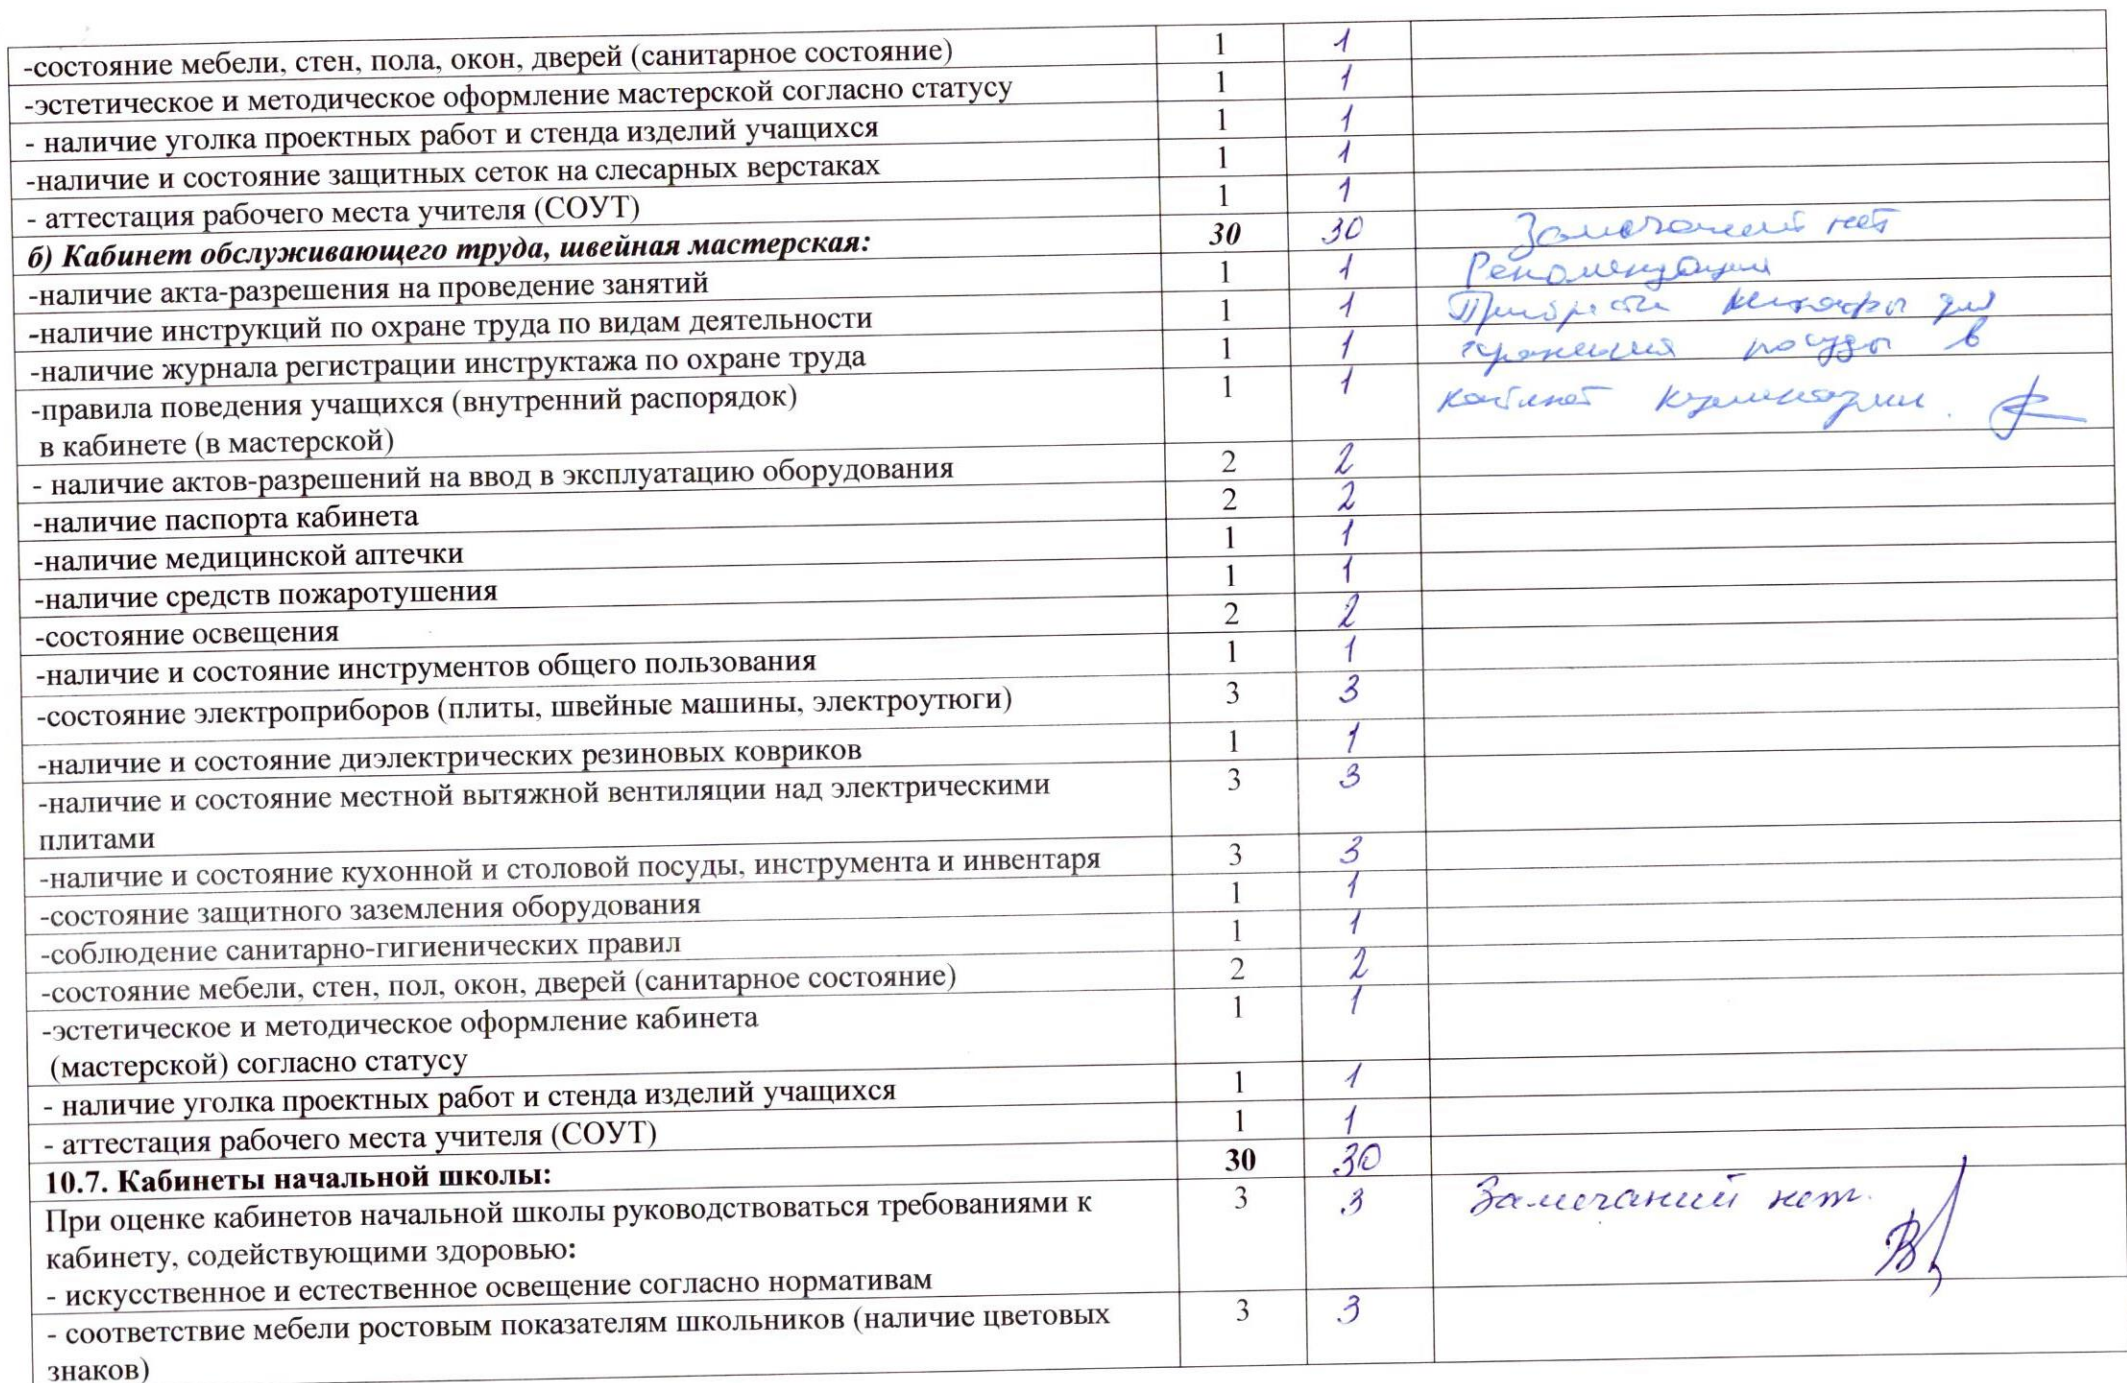 -состояние мебели, стен, пола, окон, дверей (санитарное состояние) 1 1
-эстетическое и методическое оформление мастерской согласно статусу 1 1
- наличие уголка проектных работ и стенда изделий учащихся 1 1
-наличие и состояние защитных сеток на слесарных верстаках 1 1
- аттестация рабочего места учителя (СОУТ) 1 1
б) Кабинет обслуживающего труда, швейная мастерская: 30 30 Замечаний нет
-наличие акта-разрешения на проведение занятий 1 1 Рекомендации
-наличие инструкций по охране труда по видам деятельности 1 1 Приобрести шкафы для
-наличие журнала регистрации инструктажа по охране труда 1 1 хранения посуды в
-правила поведения учащихся (внутренний распорядок) 1 1 кабинет кулинарии.
в кабинете (в мастерской)
- наличие актов-разрешений на ввод в эксплуатацию оборудования 2 2
-наличие паспорта кабинета 2 2
-наличие медицинской аптечки 1 1
-наличие средств пожаротушения 1 1
-состояние освещения 2 2
-наличие и состояние инструментов общего пользования 1 1
-состояние электроприборов (плиты, швейные машины, электроутюги) 3 3
-наличие и состояние диэлектрических резиновых ковриков 1 1
-наличие и состояние местной вытяжной вентиляции над электрическими 3 3
плитами
-наличие и состояние кухонной и столовой посуды, инструмента и инвентаря 3 3
-состояние защитного заземления оборудования 1 1
-соблюдение санитарно-гигиенических правил 1 1
-состояние мебели, стен, пол, окон, дверей (санитарное состояние) 2 2
-эстетическое и методическое оформление кабинета 1 1
(мастерской) согласно статусу
- наличие уголка проектных работ и стенда изделий учащихся 1 1
- аттестация рабочего места учителя (СОУТ) 1 1
10.7. Кабинеты начальной школы: 30 30
При оценке кабинетов начальной школы руководствоваться требованиями к 3 3 Замечаний нет.
кабинету, содействующими здоровью:
- искусственное и естественное освещение согласно нормативам
- соответствие мебели ростовым показателям школьников (наличие цветовых 3 3
знаков)